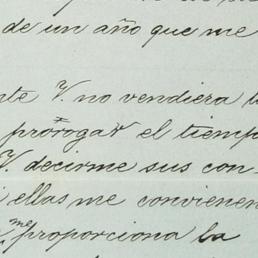 de un año que me
nte V. no vendiera l
prorogar el tiemp
V. decirme sus con-
i ellas me conviene
me
proporciona la